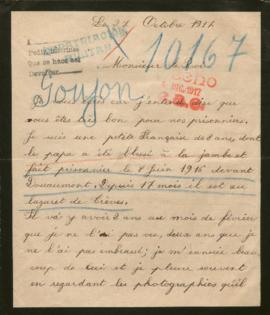 Le 27 Octobre 1917
A
10167
Monsieur le Roi
1917
Goujon
que
vous êtes si bon pour nos prisonniers.
Je suis une petite Française de 8 ans, dont
le papa a été blessé à la jambe et
fait prisonnier le 8 Juin 1916 devant
Douaumont. Depuis 17 mois il est au
lazaret de Trèves.
Il va y avoir 2 ans au mois de février
que je ne l'ai pas vu, deux ans que je
ne l'ai pas embrassé; je m'ennuie beau
coup de lui et je pleure souvent
en regardant les photographies qu'il